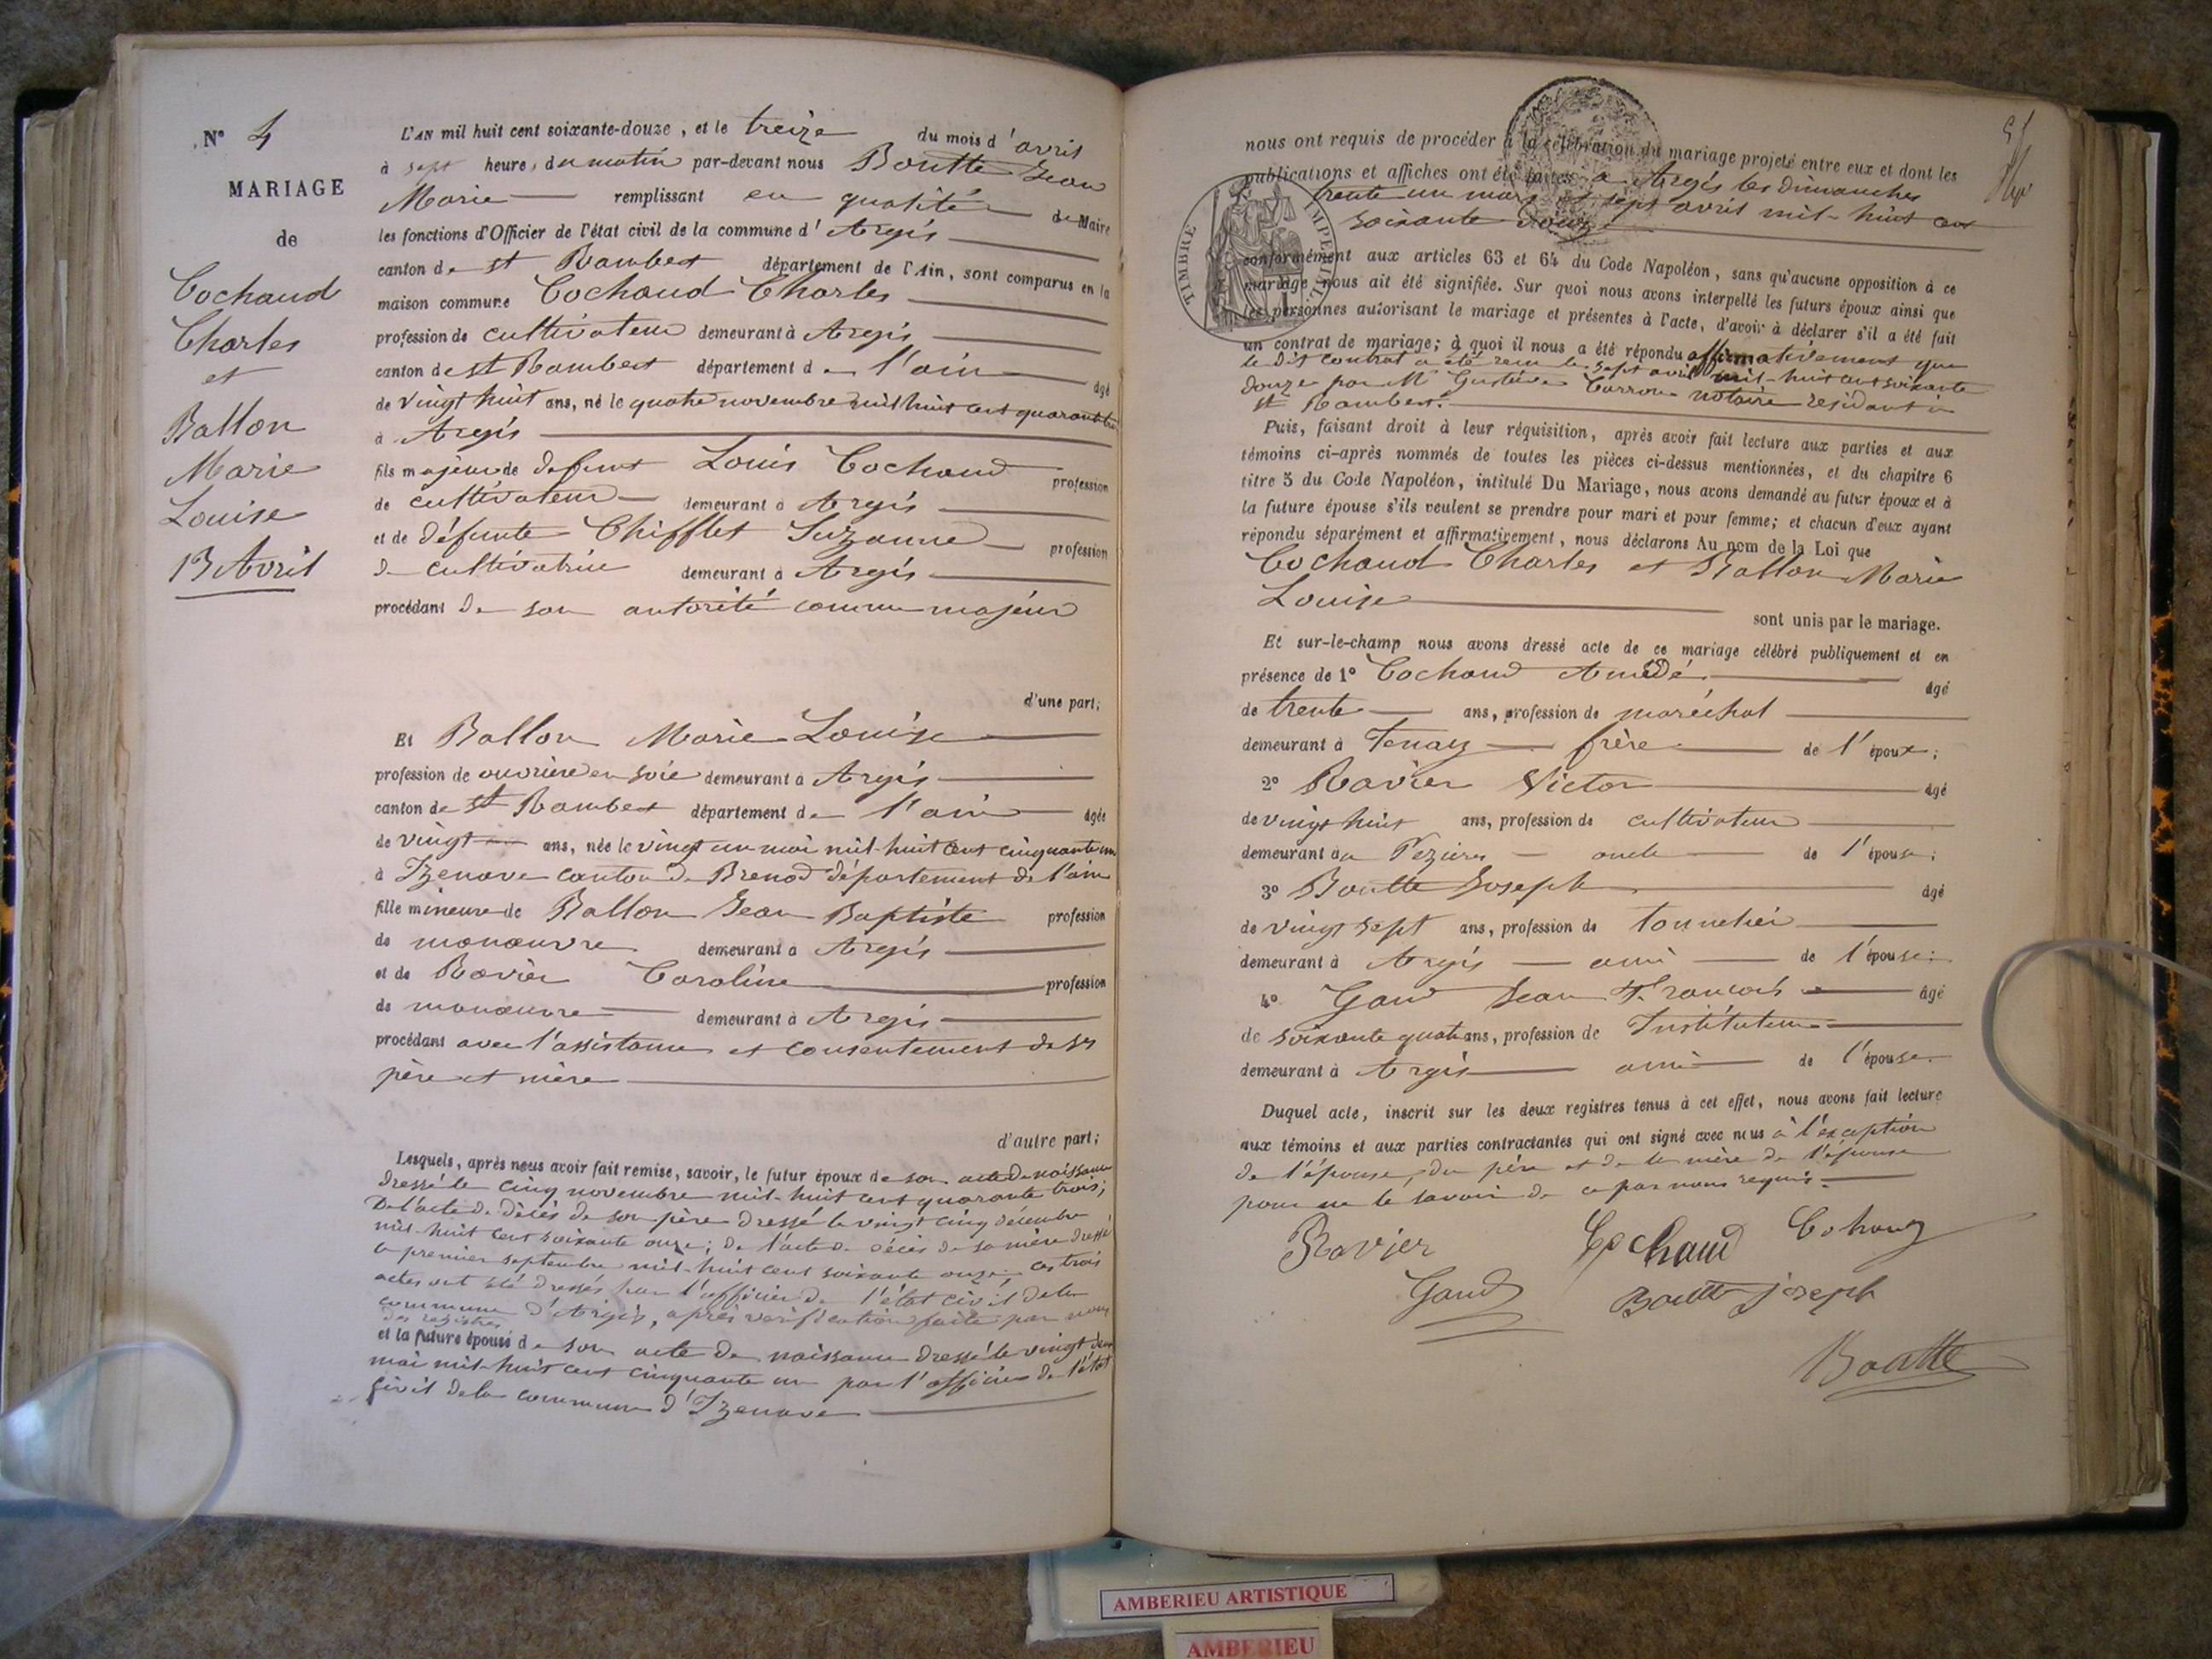 N° 4
MARIAGE
de
Cochaud
Charles
et
Ballon
Marie
Louise
13 Avril
L'AN mil huit cent soixante-douze, et le treize du mois d'avril
à sept heure, du matin par-devant nous Boutte Jean
Marie remplissant en qualité de Maire
les fonctions d'Officier de l'état civil de la commune d'Argis
canton de st Rambert département de l'Ain, sont comparus en la
maison commune Cochaud Charles
profession de cultivateur demeurant à Argis
canton de st Rambert département de l'ain âgé
de vingt huit ans, né le quatre novembre mil huit cent quarante trois
à Argis
fils majeur de defunt Louis Cochaud profession
de cultivateur demeurant à Argis
et de défunte Chifflet Suzanne profession
de cultivatrice demeurant à Argis
procédant de son autorité comme majeur
d'une part;
Et Ballon Marie Louise
profession de ouvrière en soie demeurant à Argis
canton de st Rambert département de l'ain âgée
de vingt ans, née le vingt un mai mil-huit cent cinquante un
à Izenave canton de Brenod département de l'ain
fille mineure de Ballon Jean Baptiste profession
de manœuvre demeurant à Argis
et de Ravier Caroline profession
de manœuvre demeurant à Argis
procédant avec l'assistance et consentement de ses
père et mère
d'autre part;
Lesquels, après nous avoir fait remise, savoir, le futur époux de son acte de naissance
dressé le cinq novembre mil-huit cent quarante trois;
De l'acte de décès de son père dressé le vingt cinq décembre
mil-huit cent soixante onze; de l'acte de décès de sa mère dressé
le premier septembre mil-huit cent soixante onze, ces trois
actes ont été dressés par l'officier de l'état civil de la
commune d'Argis, après vérification faite par nous
des registres
et la future épouse de son acte de naissance dressé le vingt deux
mai mil-huit cent cinquante un par l'officier de l'état
civil de la commune d'Izenave
nous ont requis de procéder à la célébration du mariage projeté entre eux et dont les
publications et affiches ont été faites à Argis les dimanches
trente un mars et sept avril mil-huit cent
soixante douze
conformément aux articles 63 et 64 du Code Napoléon, sans qu'aucune opposition à ce
mariage nous ait été signifiée. Sur quoi nous avons interpellé les futurs époux ainsi que
les personnes autorisant le mariage et présentes à l'acte, d'avoir à déclarer s'il a été fait
un contrat de mariage; à quoi il nous a été répondu affirmativement que
le dit contrat a été reçu le sept avril mil-huit cent soixante
douze par Me Gustave Carron notaire résidant à
st Rambert.
Puis, faisant droit à leur réquisition, après avoir fait lecture aux parties et aux
témoins ci-après nommés de toutes les pièces ci-dessus mentionnées, et du chapitre 6
titre 5 du Code Napoléon, intitulé Du Mariage, nous avons demandé au futur époux et à
la future épouse s'ils veulent se prendre pour mari et pour femme; et chacun d'eux ayant
répondu séparément et affirmativement, nous déclarons Au nom de la Loi que
Cochaud Charles et Ballon Marie
Louise
sont unis par le mariage.
Et sur-le-champ nous avons dressé acte de ce mariage célébré publiquement et en
présence de 1° Cochaud Amédé âgé
de trente ans, profession de maréchal
demeurant à Tenay frère de l'époux;
2° Ravier Victor âgé
de vingt huit ans, profession de cultivateur
demeurant à oncle de l'épouse;
3° Boutte Joseph âgé
de vingt sept ans, profession de tonnelier
demeurant à Argis ami de l'épouse;
4° Gand Jean François âgé
de soixante quatre ans, profession de Instituteur
demeurant à Argis ami de l'épouse.
Duquel acte, inscrit sur les deux registres tenus à cet effet, nous avons fait lecture
aux témoins et aux parties contractantes qui ont signé avec nous à l'exception
de l'épouse, du père et de la mère de l'épouse
pour ne le savoir de ce par nous requis.
Ravier Cochaud Cohaud
Gand Boutte joseph
Boutte
TIMBRE IMPERIAL
AMBERIEU ARTISTIQUE
AMBERIEU